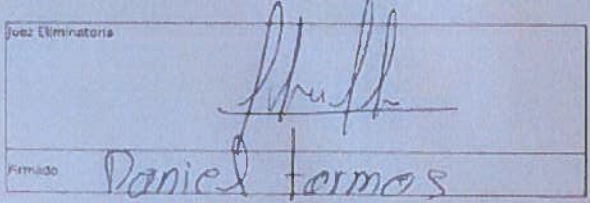 Juez Eliminatoria
Firmado Daniel tormos